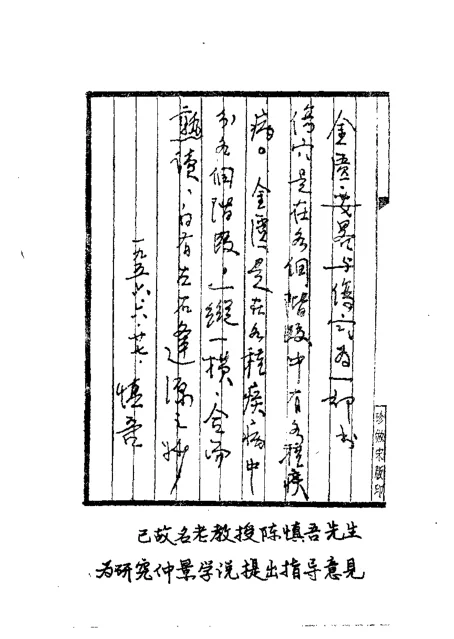 金匮要畧与傷寒为一部书
傷寒是在各個階段中有各種疾
病。金匱是在各種疾病中
分各個階段，一縱一橫，合而
熟读，自有左右逢源之妙
一九五六.六.廿七. 慎吾
珍倣宋版印
已故名老教授陈慎吾先生
为研究仲景学说提出指导意见